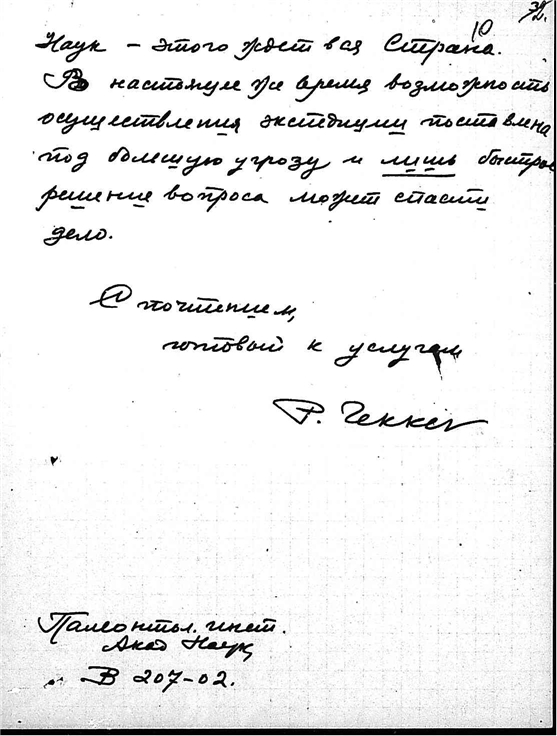 32.
10
Наук – этого ждет вся Страна.
В настоящее же время возможность
осуществления экспедиции поставлена
под большую угрозу и лишь быстрое
решение вопроса может спасти
дело.
С почтением,
готовый к услугам
Р. Геккер
Палеонтол. инст.
Акад Наук
В 207-02.